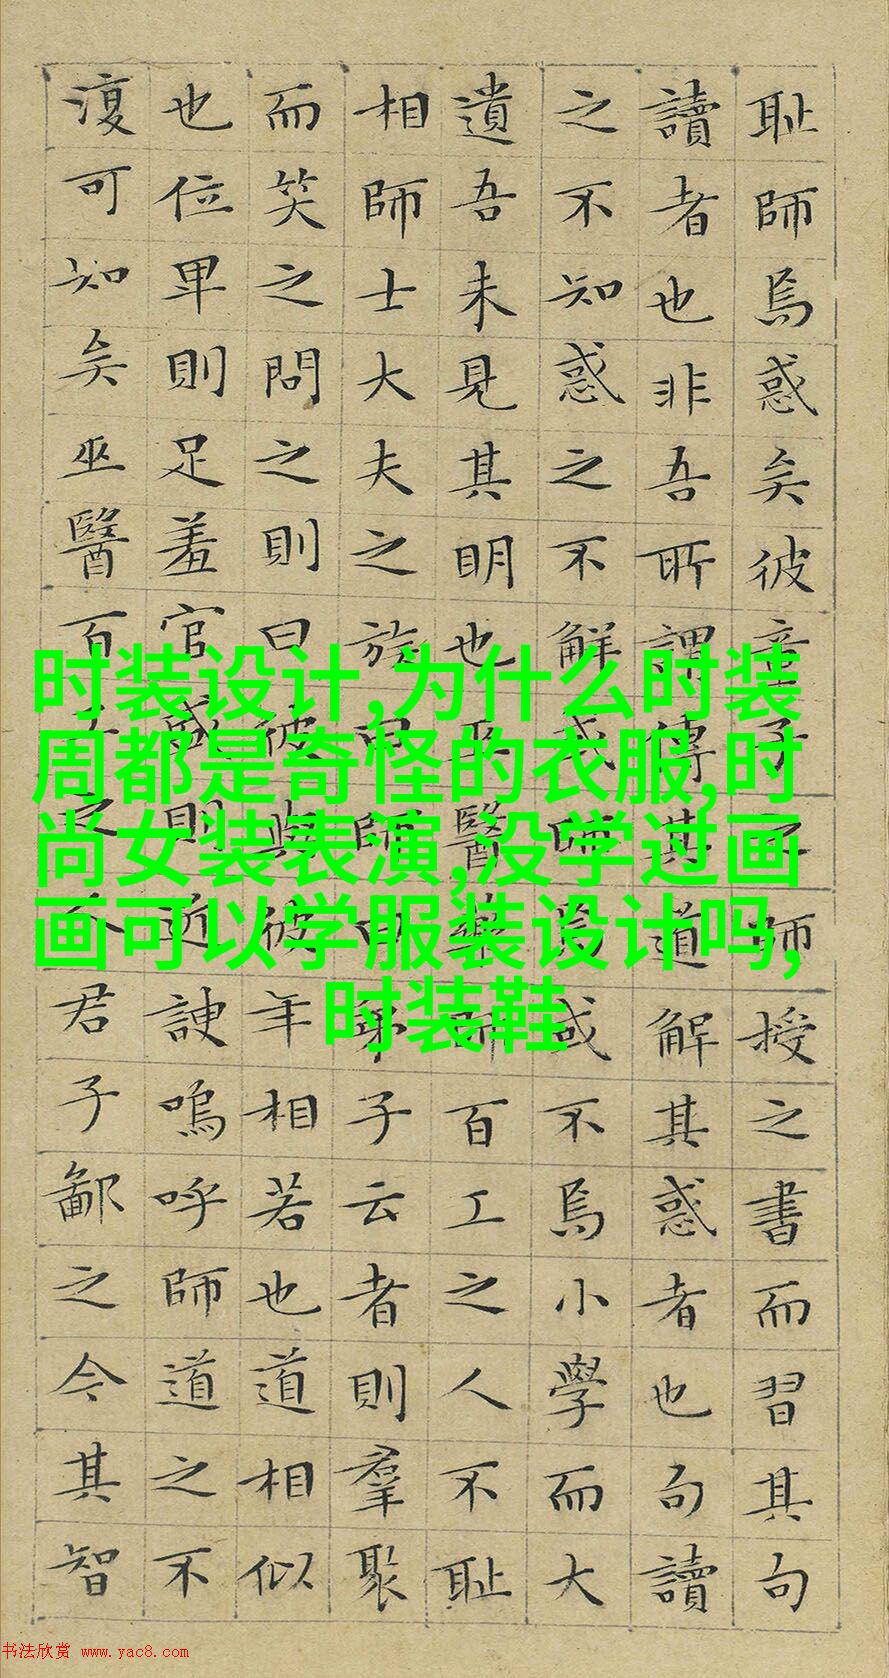 耻師焉惑矣彼童子之師授之書而習其句
讀者也非吾所謂傳其道解其惑者也句讀
之不知惑之不解或師焉或不焉小學而大
遺吾未見其明也巫醫樂師百工之人不耻
相師士大夫之族曰師曰弟子云者則羣聚
而笑之問之則曰彼與彼年相若也道相似
也位卑則足羞官盛則近諛嗚呼師道之不
復可知矣巫醫百工之人君子鄙之今其智
时装设计,为什么时装
周都是奇怪的衣服,时
尚女装表演,没学过画
画可以学服装设计吗,
时装鞋
书法欣赏 www.yac8.com